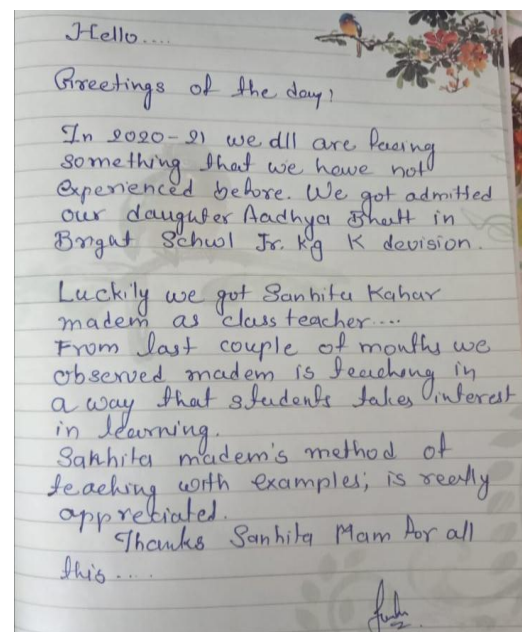 Hello....
Greetings of the day!
In 2020-21 we all are facing
something that we have not
experienced before. We got admitted
our daughter Aadhya Bhatt in
Bright School Jr. Kg K devision.
Luckily we got Sanhita Kahar
madem as class teacher....
From last couple of months we
observed madem is teaching in
a way that students takes interest
in learning.
Sanhita madem's method of
teaching with examples; is really
appreciated.
Thanks Sanhita Mam for all
this....